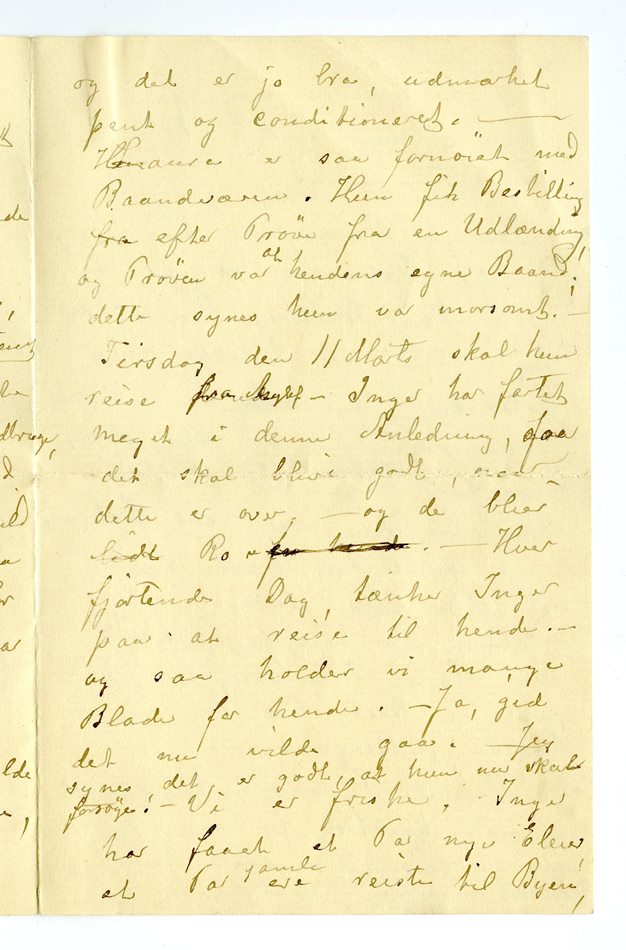 og det er jo bra, udmærket
pent og conditioneret. —
er saa fornöiet med
Baandvæven. Hun fik Bestilling
fra efter Pröve fra en Udlænding,
og Pröven var af hendens egne Baand;
dette synes hun var morsomt! —
Tirsdag den 11 Marts skal hun
reise fra — Inger har fartet
meget i denne Anledning, faa
det skal blive godt, naar
dette er over. — og de blier
lidt Ro for hende. — Hver
fjortende Dag, tænker Inger
paa at reise til hende. —
og saa holder vi mange
Blade for hende. — Ja, gid
det nu vilde gaa. — Jeg
synes, det er godt, at hun nu skal
forsöge! — Vi er friske, Inger
har faaet et Par nye Elever,
et Par gamle ere reiste til Byen,
de
,
dbruge,
d
ild
a
ar
lde
,